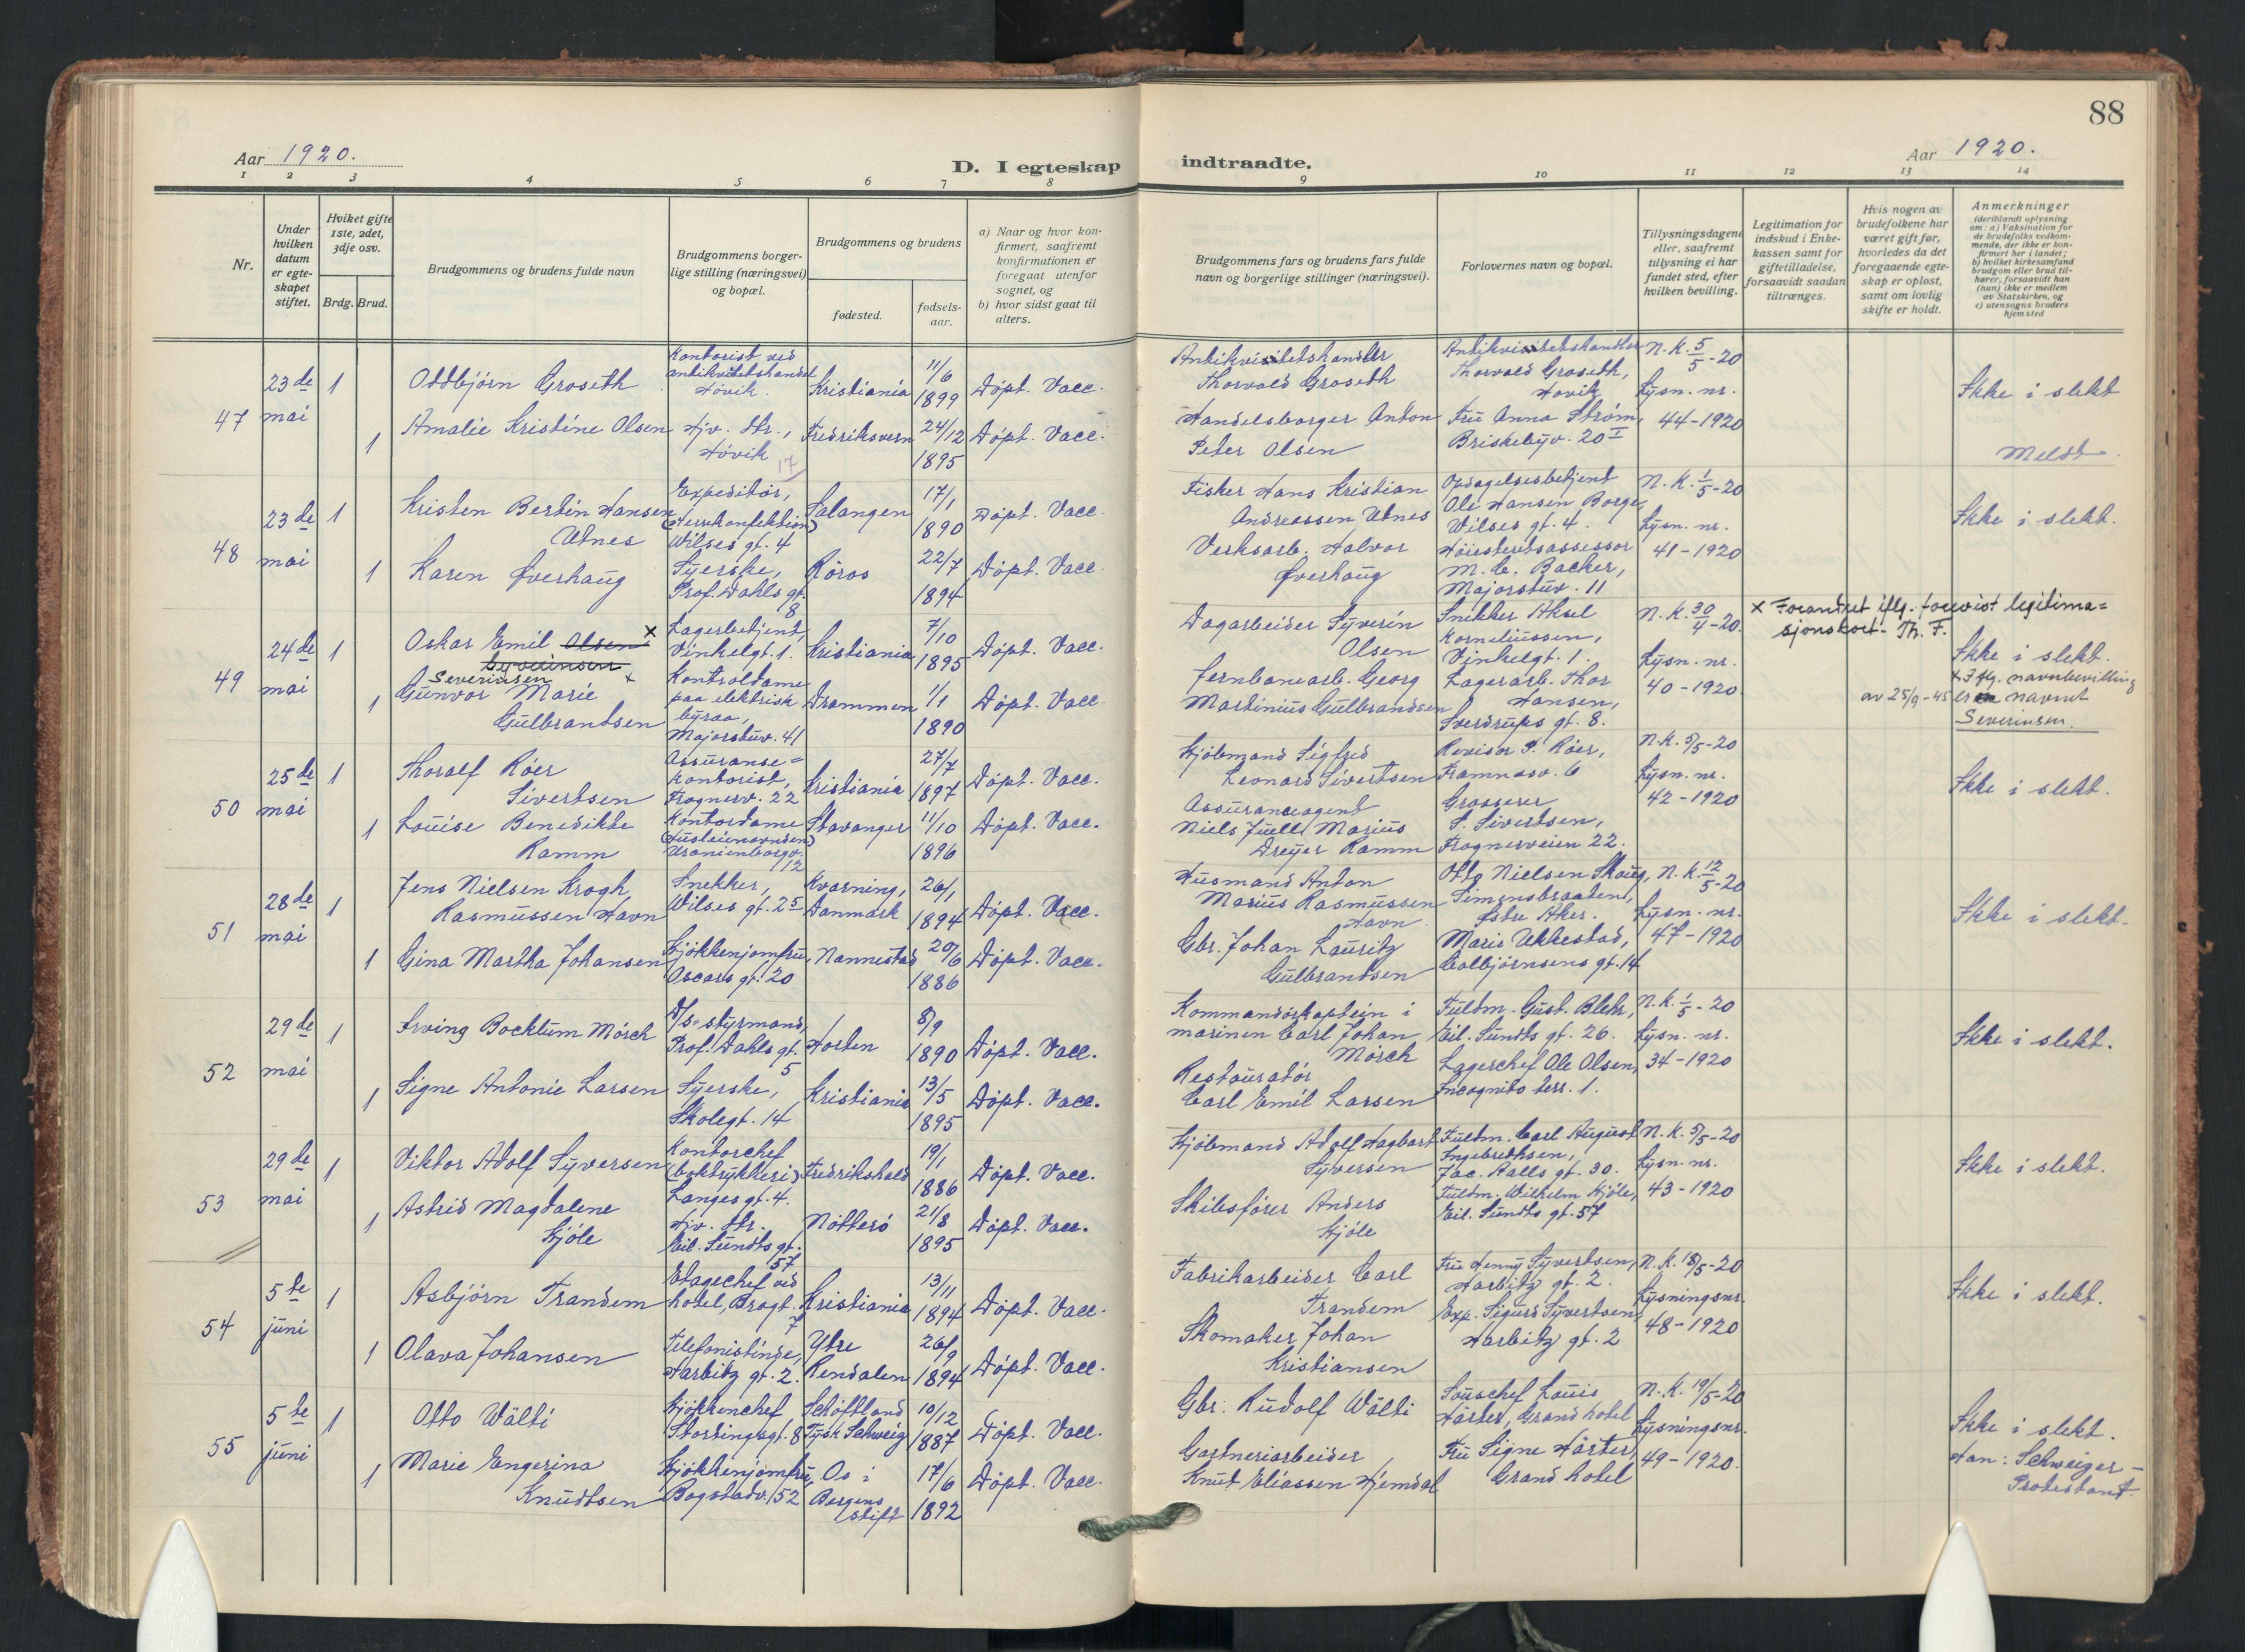 88
Aar 1920.
D. I egteskap indtraadte.
Aar 1920.
1 2 3 4 5 6 7 8 9 10 11 12 13 14
Nr.
Under hvilken datum er egteskapet stiftet.
Hviket gifte 1ste, 2det, 3dje osv.
Brdg. Brud.
Brudgommens og brudens fulde navn
Brudgommens borgerlige stilling (næringsvei) og bopæl.
Brudgommens og brudens
fødested.
fødselsaar.
a) Naar og hvor konfirmert, saafremt konfirmationen er foregaat utenfor sognet, og
b) hvor sidst gaat til alters.
Brudgommens fars og brudens fars fulde navn og borgerlige stillinger (næringsvei).
Forlovernes navn og bopæl.
Tillysningsdagene eller, saafremt tillysning ei har fundet sted, efter hvilken bevilling.
Legitimation for indskud i Enkekassen samt for giftetilladelse, forsaavidt saadan tiltrænges.
Hvis nogen av brudefolkene har været gift før, hvorledes da det foregaaende egteskap er opløst, samt om lovlig skifte er holdt.
Anmerkninger
(deriblandt oplysning om: a) Vaksination for de brudefolks vedkommende, der ikke er konfirmert her i landet; b) hvilket kirkesamfund brudgom eller brud tilhører, forsaavidt han (hun) ikke er medlem av Statskirken, og c) utensogns bruders hjemsted
47
23de mai
1
Oddbjörn Groseth
Kontorist ved antikvitetshandel Høvik
Kristiania
11/6 1899
Döpt. Vacc.
Antikvitetshandler Thorvald Groseth
Antikvitetshandler Thorvald Groseth, Høvik
N.K. 5/5-20
Lysn. nr. 44-1920
Ikke i slekt
1
Amalie Kristine Olsen
Hjv. str., Høvik
17
Fredriksvern
24/12 1895
Döpt. Vacc.
Handelsborger Anton Peter Olsen
Fru Anna Ström, Briskebyv. 20 I
Meldt
48
23de mai
1
Kristen Bertin Hansen Utnes
Expeditör, (Herrekonfektion) Wilses gt. 4
Salangen
17/1 1890
Döpt. Vacc.
Fisker Hans Kristian Andreassen Utnes
Opsagelsesbetjent Ole Hansen Borge, Wilses gt. 4.
N.K. 1/5-20
Lysn. nr. 41-1920
Ikke i slekt.
1
Karen Øverhaug
Syerske, Prof. Dahls gt. 8
Röros
22/7 1894
Döpt. Vacc.
Verksarb. Halvor Øverhaug
Höiesteretsassessor M. C. Backer, Majorstuv. 11
49
24de mai
1
Oskar Emil Olsen x
Syverinsen
Severinsen x
Lagerbetjent, Vinkelgt. 1.
Kristiania
7/10 1895
Döpt. Vacc.
Dagarbeider Syverin Olsen
Snekker Aksel Korneliussen, Vinkelgt. 1.
N.K. 30/4-20.
Lysn. nr. 40-1920.
x Forandret iflg. forevist legitimasjonskort. Th. F.
Ikke i slekt.
x Iflg. navnbevilling av 25/9-45 er navnet Severinsen.
1
Gunvor Marie Gulbrandsen
Kontroldame paa elektrisk byraa, Majorstuv. 41
Drammen
1/1 1890
Döpt. Vacc.
Jernbanearb. Georg Martinius Gulbrandsen
Lagerarb. Thor Hansen, Sverdrups gt. 8.
50
25de mai
1
Thoralf Röer Sivertsen
Assuranse-kontorist, Frognerv. 22
Kristiania
27/7 1897
Döpt. Vacc.
Kjöbmand Sigfred Leonard Sivertsen
Revisor P. Röer, Framnesv. 6
N.K. 5/5-20
Lysn. nr. 42-1920
Ikke i slekt.
1
Louise Benedikte Ramm
Kontordame (Husleienævnden) Uranienborgv. 12
Stavanger
11/10 1896
Döpt. Vacc.
Assuranceagent Niels Juell Marius Dreyer Ramm
Grosserer S. Sivertsen, Frognerveien 22.
51
28de mai
1
Jens Nielsen Krogh Rasmussen Havn
Snekker, Wilses gt. 25
Kvorning, Danmark
26/1 1894
Döpt. Vacc.
Husmand Anton Marius Rasmussen Havn
Otto Nielsen Skaug, Simensbraaten, Østre Aker.
N.K. 12/5-20
Lysn. nr. 47-1920
Ikke i slekt.
1
Gina Martha Johansen
Kjökkenjomfru, Oscars gt. 20
Nannestad
20/6 1886
Döpt. Vacc.
Gbr. Johan Lauritz Gulbrandsen
Marie Ukkestad, Colbjörnsens gt. 14
52
29de mai
1
Irving Bocklum Mörch
D/s-styrmand, Prof. Dahls gt. 5
Horten
8/9 1890
Döpt. Vacc.
Kommandörkaptein i marinen Carl Johan Mörch
Fuldm. Gust. Blehr, Eil. Sundts gt. 26.
N.K. 1/5-20
Lysn. nr. 34-1920
Ikke i slekt.
1
Signe Antonie Larsen
Syerske, Skolegt. 14
Kristiania
13/5 1895
Döpt. Vacc.
Restauratör Carl Emil Larsen
Lagerchef Ole Olsen, Incognito terr. 1.
53
29de mai
1
Viktor Adolf Syversen
Kontorchef (boktrykkeri) Langes gt. 4.
Fredrikshald
19/1 1886
Döpt. Vacc.
Kjöbmand Adolf Dagbart Syversen
Fuldm. Carl August Ingebrethsen, Jac. Aalls gt. 30.
N.K. 5/5-20
Lysn. nr. 43-1920
Ikke i slekt.
1
Astrid Magdalene Kjöle
Hjv. str. Eil. Sundts gt. 57
Nötterö
21/8 1895
Döpt. Vacc.
Skibsförer Anders Kjöle
Fuldm. Wilhelm Kjöle, Eil. Sundts gt. 57
54
5te juni
1
Asbjörn Trandem
Etagechef ved hotel, Pragt. 7
Kristiania
13/11 1894
Döpt. Vacc.
Fabrikarbeider Carl Trandem
Fru Henny Syvertsen, Harbitz gt. 2.
N.K. 18/5-20
Lysningsnr. 48-1920
Ikke i slekt.
1
Olava Johansen
Telefonistinde, Harbitz gt. 2.
Ytre Rendalen
26/9 1894
Döpt. Vacc.
Skomaker Johan Kristiansen
Exp. Sigurd Syvertsen, Harbitz gt. 2
55
5te juni
1
Otto Wälti
Kjökkenchef Stortingsgt. 8
Schöftland Tysk Schweig
10/12 1887
Döpt. Vacc.
Gbr. Rudolf Wälti
Souschef Louis Härter, Grand hotel
N.K. 19/5-20
Lysningsnr. 49-1920.
Ikke i slekt.
Han: Schweizer-Protestant.
1
Marie Engerina Knudtsen
Kjökkenjomfru, Bogstadv. 52
Os i Bergens stift
17/6 1892
Döpt. Vacc.
Gartneriarbeider Knut Eliassen Hjemdal
Fru Signe Härter, Grand hotel